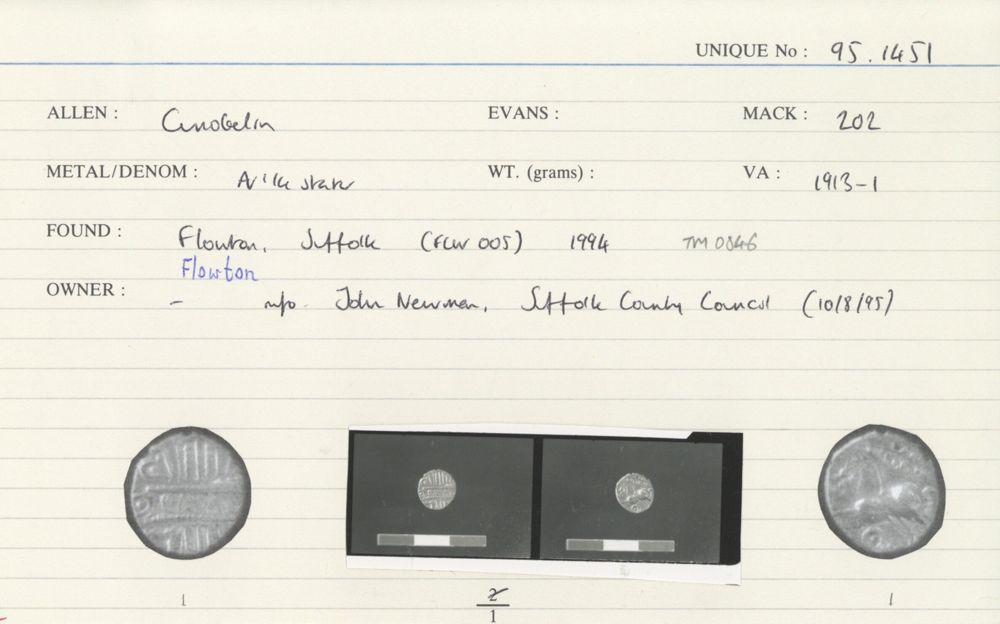 UNIQUE No : 95.1451
ALLEN : Cunobelin EVANS : MACK : 202
METAL/DENOM : A/ 1/4 stater WT. (grams) : VA : 1913-1
FOUND : Flowton, Suffolk (FLW 005) 1994 TM 0846
Flowton
OWNER : - info. John Newman, Suffolk County Council (10/8/95)
1 2 1
1